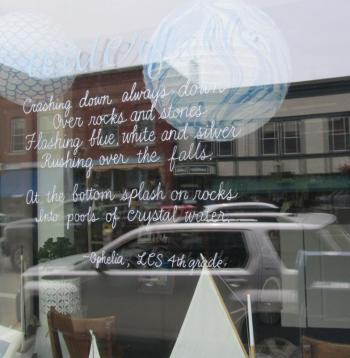 Crashing down always down
Over rocks and stones.
Flashing blue, white and silver
Rushing over the falls.
At the bottom splash on rocks
Into pools of crystal water.
~Ophelia, LCS 4th grade.